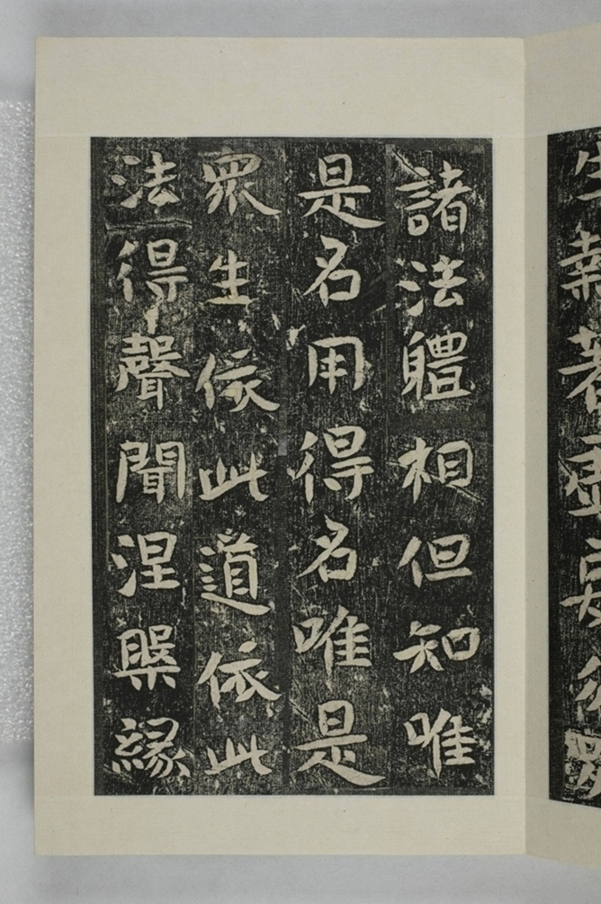 生執著虛妄
諸法軆相但知唯
是名用得名唯是
衆生依此道依此
法得聲聞涅槃緣